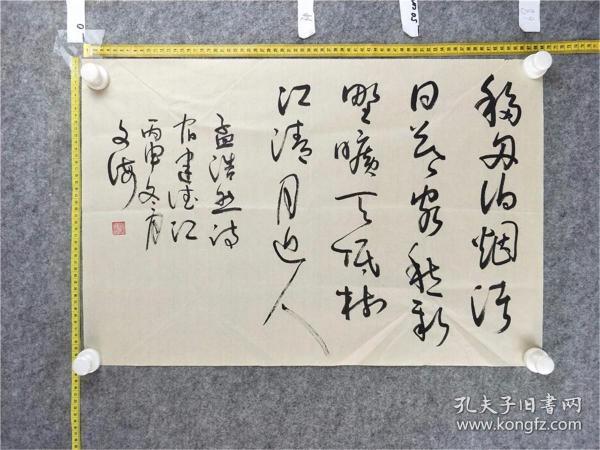 移舟泊烟渚
日暮客愁新
野旷天低树
江清月近人
孟浩然诗
宿建德江
丙申冬月
文海
孔夫子旧书网
www.kongfz.com